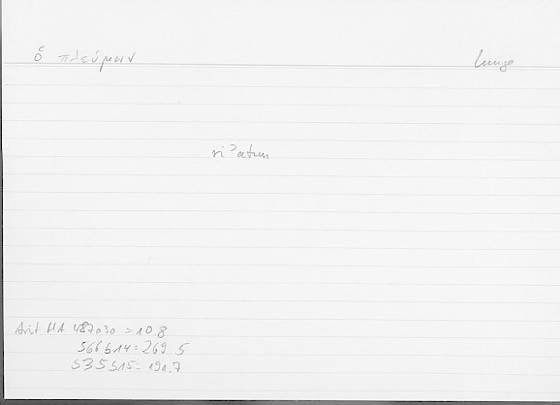 ὁ πλεύμων Lunge
ri ᵓatun
Arist HA 487a30 = 10.8
566b14 = 269.5
535b15 = 191.7